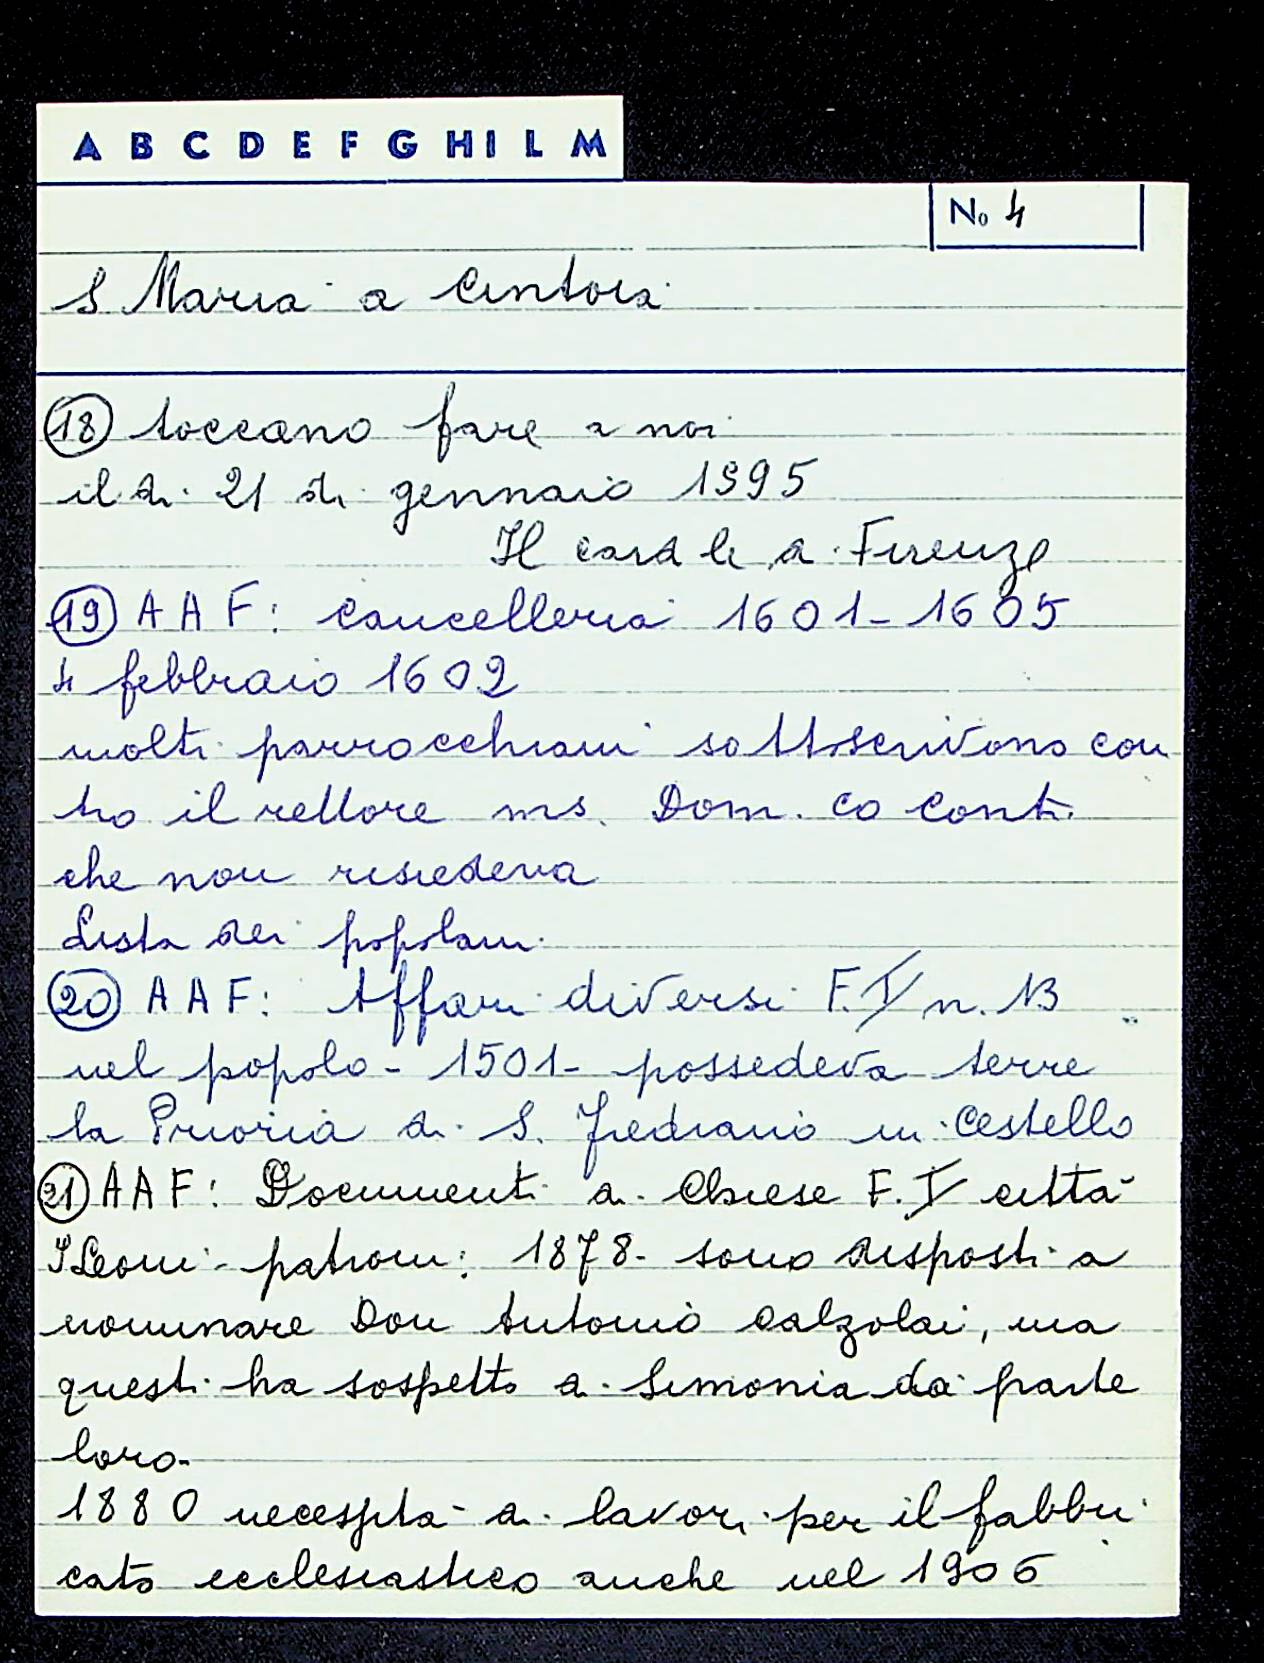 A B C D E F G H I L M
No 4
S Maria a Cintoia
18 toccano fare a noi
il dì 21 di gennaio 1595
Il card le di Firenze
19 AAF: Cancelleria 1601-1605
4 febbraio 1602
molti parrocchiani sottoscrivono con
tro il rettore ms. Dom. co Conti
che non risiedeva
Lista dei popolani
20 AAF: Affari diversi F. I n. 13
nel popolo - 1501 - possedeva terre
la Prioria di S. Frediano in Cestello
21 AAF: Documenti di Chiese F. I città
I Leoni - patroni: 1878 - sono disposti a
nominare Don Antonio Calzolai, ma
questi ha sospetto di Simonia da parte
loro -
1880 necessità di lavori per il fabbri
cato ecclesiastico anche nel 1906